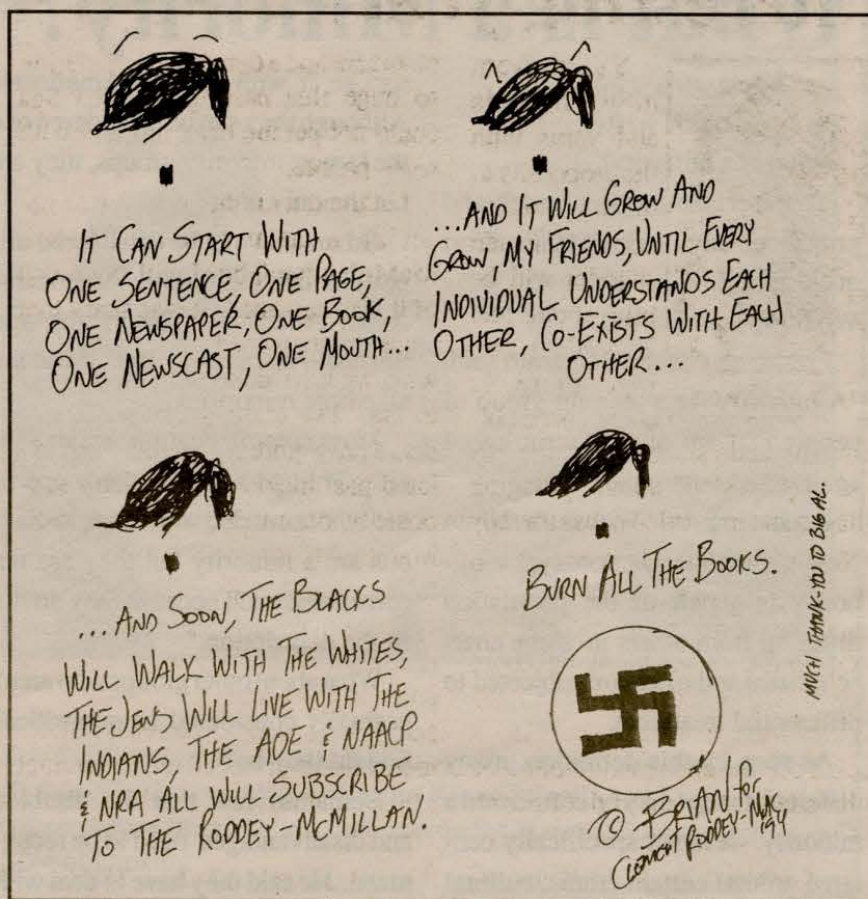 It Can Start With
One Sentence, One Page,
One Newspaper, One Book,
One Newscast, One Mouth...
...And It Will Grow And
Grow, My Friends, Until Every
Individual Understands Each
Other, Co-Exists With Each
Other...
...And Soon, The Blacks
Will Walk With The Whites,
The Jews Will Live With The
Indians, The AOE & NAACP
& NRA All Will Subscribe
To The Roddey-McMillan.
Burn All The Books.
Much Thank-You To Big Al.
© Brian for
Clement Roddey-Mac '94